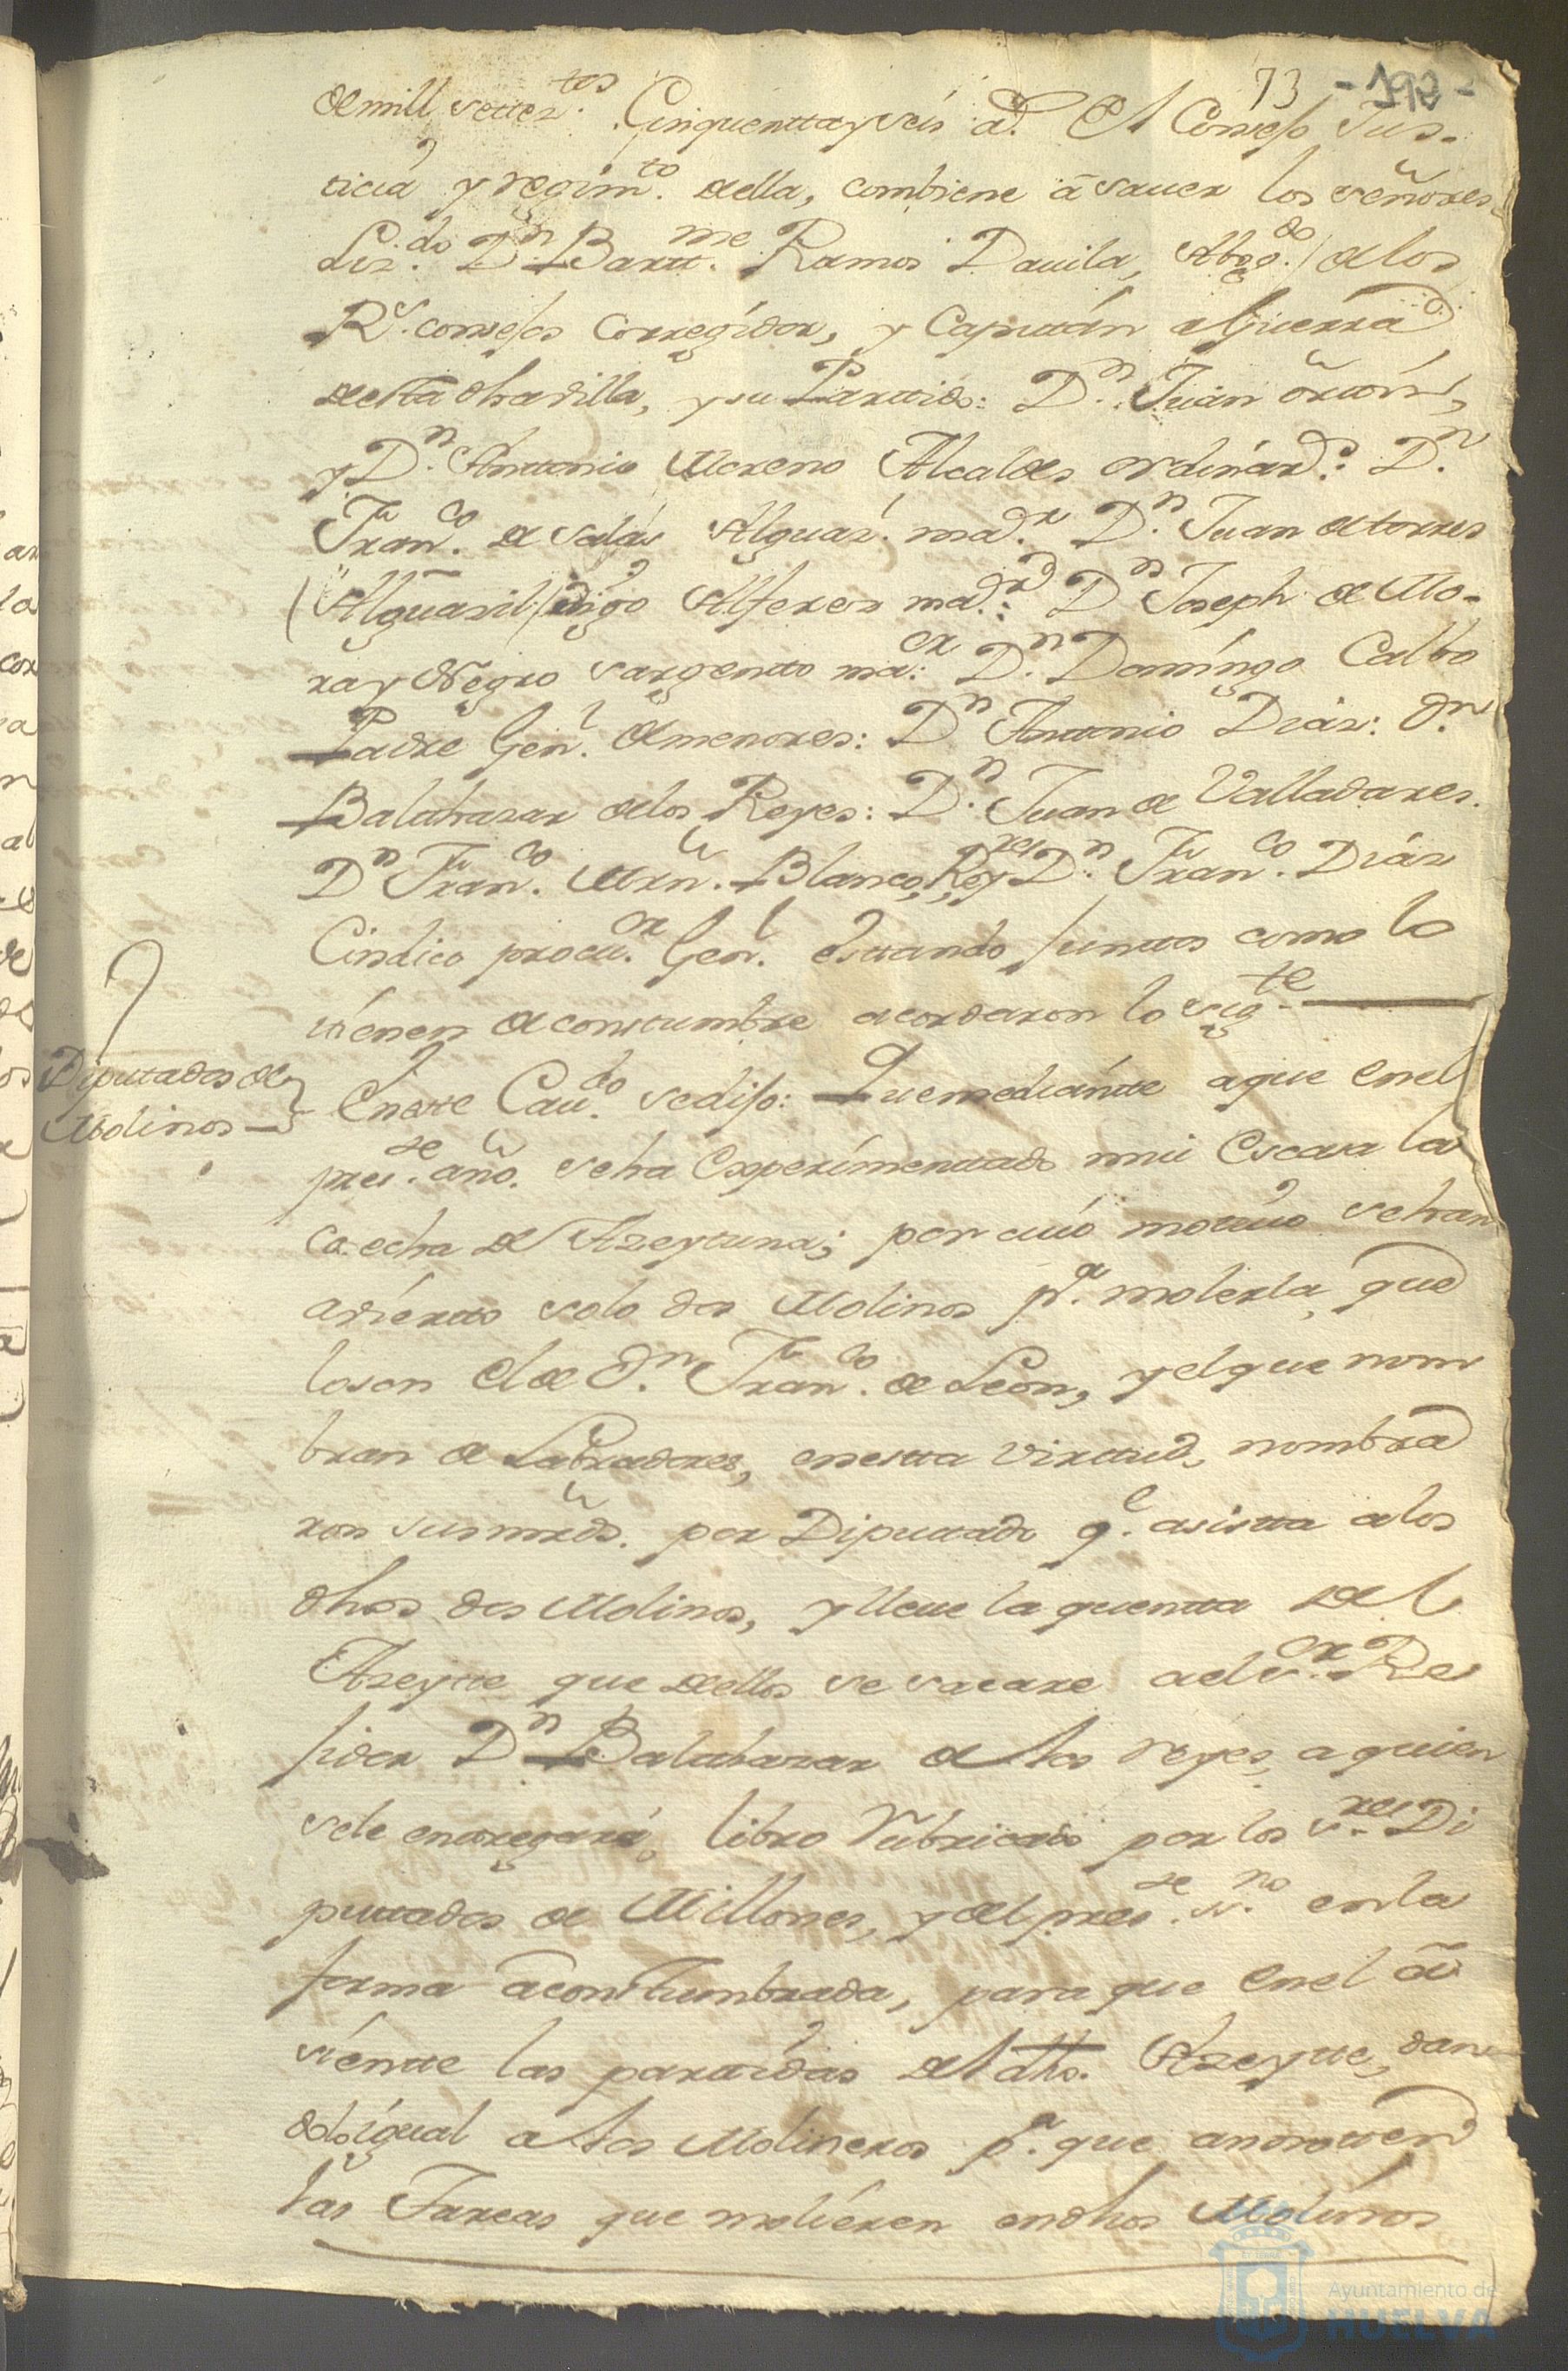 73 - 192 -
de mill setez.tos Cinquenta y seis a.s El Consejo Jus-
ticia y regim.to della, combiene á sauer los señores
Liz.do D.n Bartt.me Ramos Dauila, Abog.do de los
R.s consejos Corregidor, y Capittán a Guerra
desta dha villa, y su Parttido: D.n Juan
y D.n Anttonio Moreno Alcaldes ordinar.s: D.n
Fran.co de Salas Alguaz. ma.r D.n Juan de torres
(Alguasil) digo Alferez ma.or: D.n Joseph de Mo-
ra y Negro sargentto ma.or: D.n Domingo Calbo
Padre Gen.l de menores: D.n Anttonio Diaz: d.n
Balthazar de los Reyes: D.n Juan de Valladares.
D.n Fran.co Mrn. Blanco, Reg.res D.n Fran.co Diaz
Cindico procu.or Gen.l esttando junttos como lo
tienen de constumbre acordaron lo sig.te
Diputtados de
Molinos
En este Cau.do se dijo: Que mediántte a que en el
pres.te año. se ha Experimenttado mui Escasa la
cosecha de Azeytuna; por cuio mottiuo se han
avierto solo dos Molinos p.a molerla, que
lo son el de d.n Fran.co de Leon, y el que nom
bran de Labradores, en estta virttud, nombra
ron sus mrds. por Diputtado q.e asistta a los
dhos dos Molinos, y lleue la quentta del
Azeytte que dellos se sacare a el s.or Re
jidor D.n Balthazar de los reyes, a quien
se le entregará, libro Rubricado por los s.res Di
puttados de Millones, y del pres.te ss.no en la
forma acontumbrada, para que en el a
siente las parttidas del dho. Azeytte, dan
do igual a los Molineros p.a que anotten
las Tareas que molieren en dhos Molinos
Ayuntamiento de
HUELVA